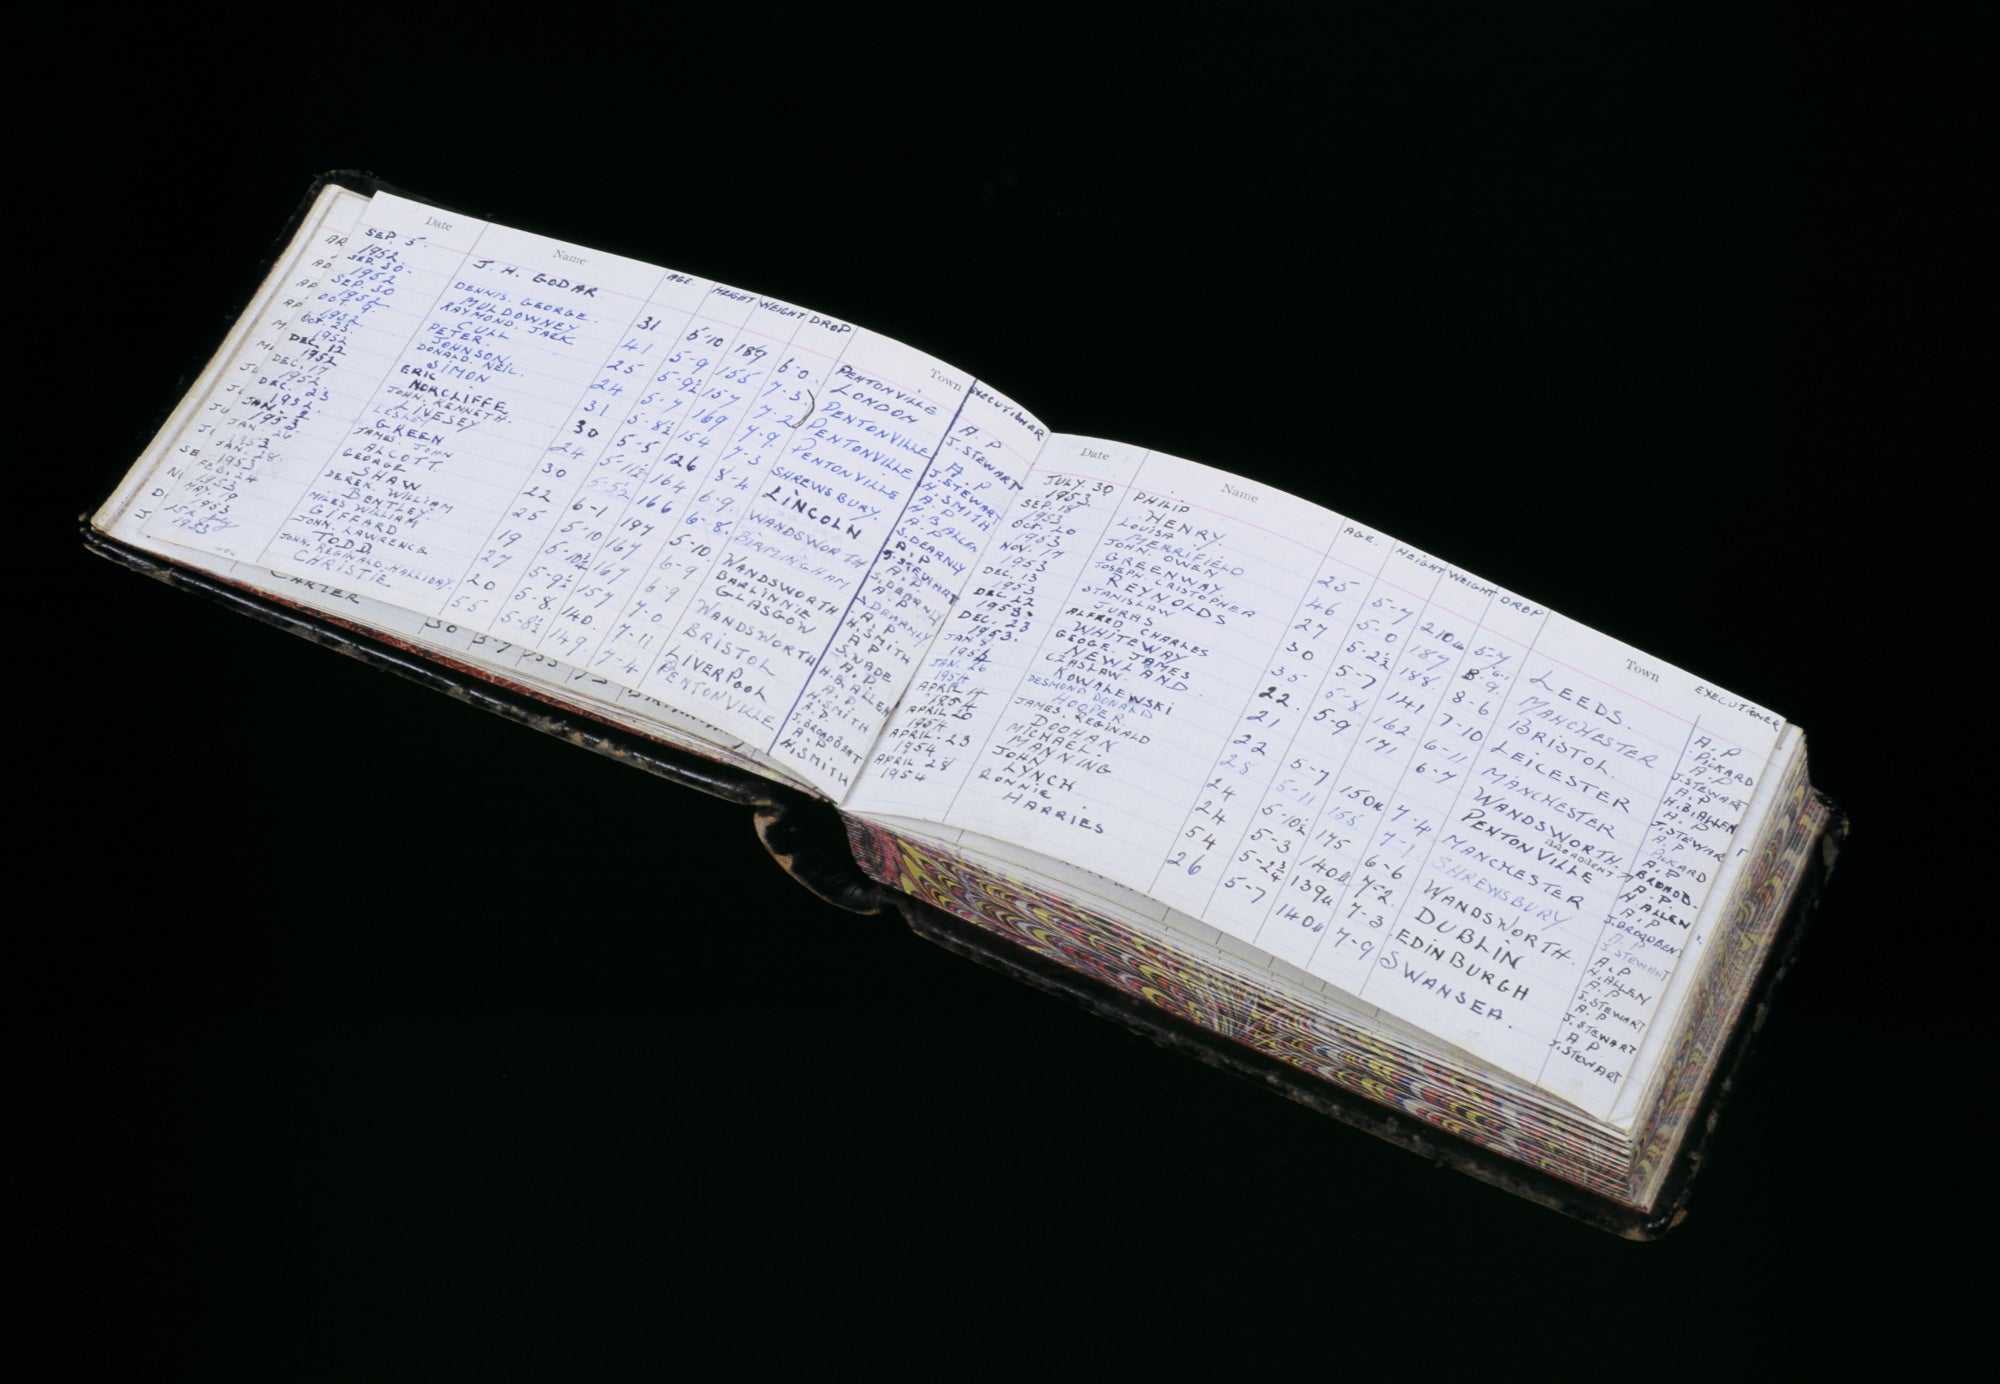 Date Name AGE. HEIGHT WEIGHT DROP Town EXECUTIONER
SEP. 5. 1952 J. H. GODAR. 31 5-10 189 6-0. PENTONVILLE LONDON A.P J.STEWART
SEP. 30. 1952 DENNIS. GEORGE. MULDOWNEY 41 5-9 155 7-3. PENTONVILLE A.P J.STEWART
SEP. 30 1952 RAYMOND. JACK CULL 25 5-9½ 157 7-2 PENTONVILLE H.SMITH
OCT. 9. 1952 PETER. JOHNSON. 24 5-7 169 7-9. PENTONVILLE A.P H.B.ALLEN
OCT. 23. 1952 DONALD. NEIL. SIMON 31 5-8½ 154 7-3 SHREWSBURY. A.P S.DEARNLY
DEC. 12 1952 ERIC NORCLIFFE 30 5-5 126 8-4 LINCOLN A.P J.STEWART
DEC. 17 1952. JOHN. KENNETH. LIVESEY 24 5-11½ 164 6-9 WANDSWORTH A.P S.DEARNLY
DEC. 23 1952. LESLEY GREEN 30 5-5½ 166 6-8. BIRMINGHAM A.P S.DEARNLY
JAN. 2 1953. JAMES. JOHN ALCOTT. 22 6-1 197 5-10. WANDSWORTH A.P H.SMITH
JAN. 26. 1953 GEORGE SHAW 25 5-10 167 6-9 BARLINNIE GLASGOW A.P S.WADE
JAN. 28. 1953 DEREK. WILLIAM BENTLEY. 19 5-10½ 167 6-9 WANDSWORTH A.P H.B.ALLEN
FEB. 24 1953 MILES WILLIAM GIFFARD 27 5-9½ 157 7-0 BRISTOL A.P H.SMITH
MAY. 19 1953 JOHN. LAWRENCE TODD 20 5-8. 140. 7-11 LIVERPOOL A.P J.BROADBENT
15th July 1953 JOHN. REGINALD. HALLIDAY. CHRISTIE 55 5-8½ 149. 7-4 PENTONVILLE A.P H.SMITH
CARTER
Date Name AGE. HEIGHT WEIGHT DROP Town EXECUTIONER
JULY. 30 1953 PHILIP HENRY. 25 5-7 210 5-7 LEEDS. A.P PICKARD
SEP. 18 1953 LOUISA MERRIFIELD 46 5-0 187 8-9. MANCHESTER A.P J.STEWART
OCT. 20 1953 JOHN. OWEN GREENWAY. 27 5-2½ 188. 8-6 BRISTOL. A.P H.B.ALLEN
NOV. 17 1953 JOSEPH. CRISTOPHER REYNOLDS 30 5-7 141 7-10 LEICESTER A.P J.STEWART
DEC. 13 1953 STANISLAW JURAS 35 5-8 162. 6-11 MANCHESTER A.P
DEC 22 1953. ALFRED CHARLES WHITEWAY 22. 5-9. 171 6-7 WANDSWORTH. A.P
DEC. 23 1953. GEOGE. JAMES NEWLAND. 21 PENTONVILLE BROADBENT A.P H.ALLEN
JAN. 8. 1954 CZASLAW. KOWALEWSKI 22 5-7 150 7-4 MANCHESTER A.P J.BROADBENT
JAN. 26 1954 DESMOND DONALD HOOPER 28 5-11 155 7-1. SHREWSBURY A.P J.STEWART
APRIL 14 1954 JAMES. REGINALD DOOHAN 24 5-10½ 175 6-6 WANDSWORTH. A.P H.ALLEN
APRIL. 20 1954 MICHAEL. MANNING 24 5-3 140 7-2. DUBLIN A.P J.STEWART
APRIL. 23 1954. JOHN LYNCH 54 5-2¾ 139 7-3 EDINBURGH A.P J.STEWART
APRIL 28 1954 RONNIE. HARRIES 26 5-7 140 7-9 SWANSEA. A.P J.STEWART